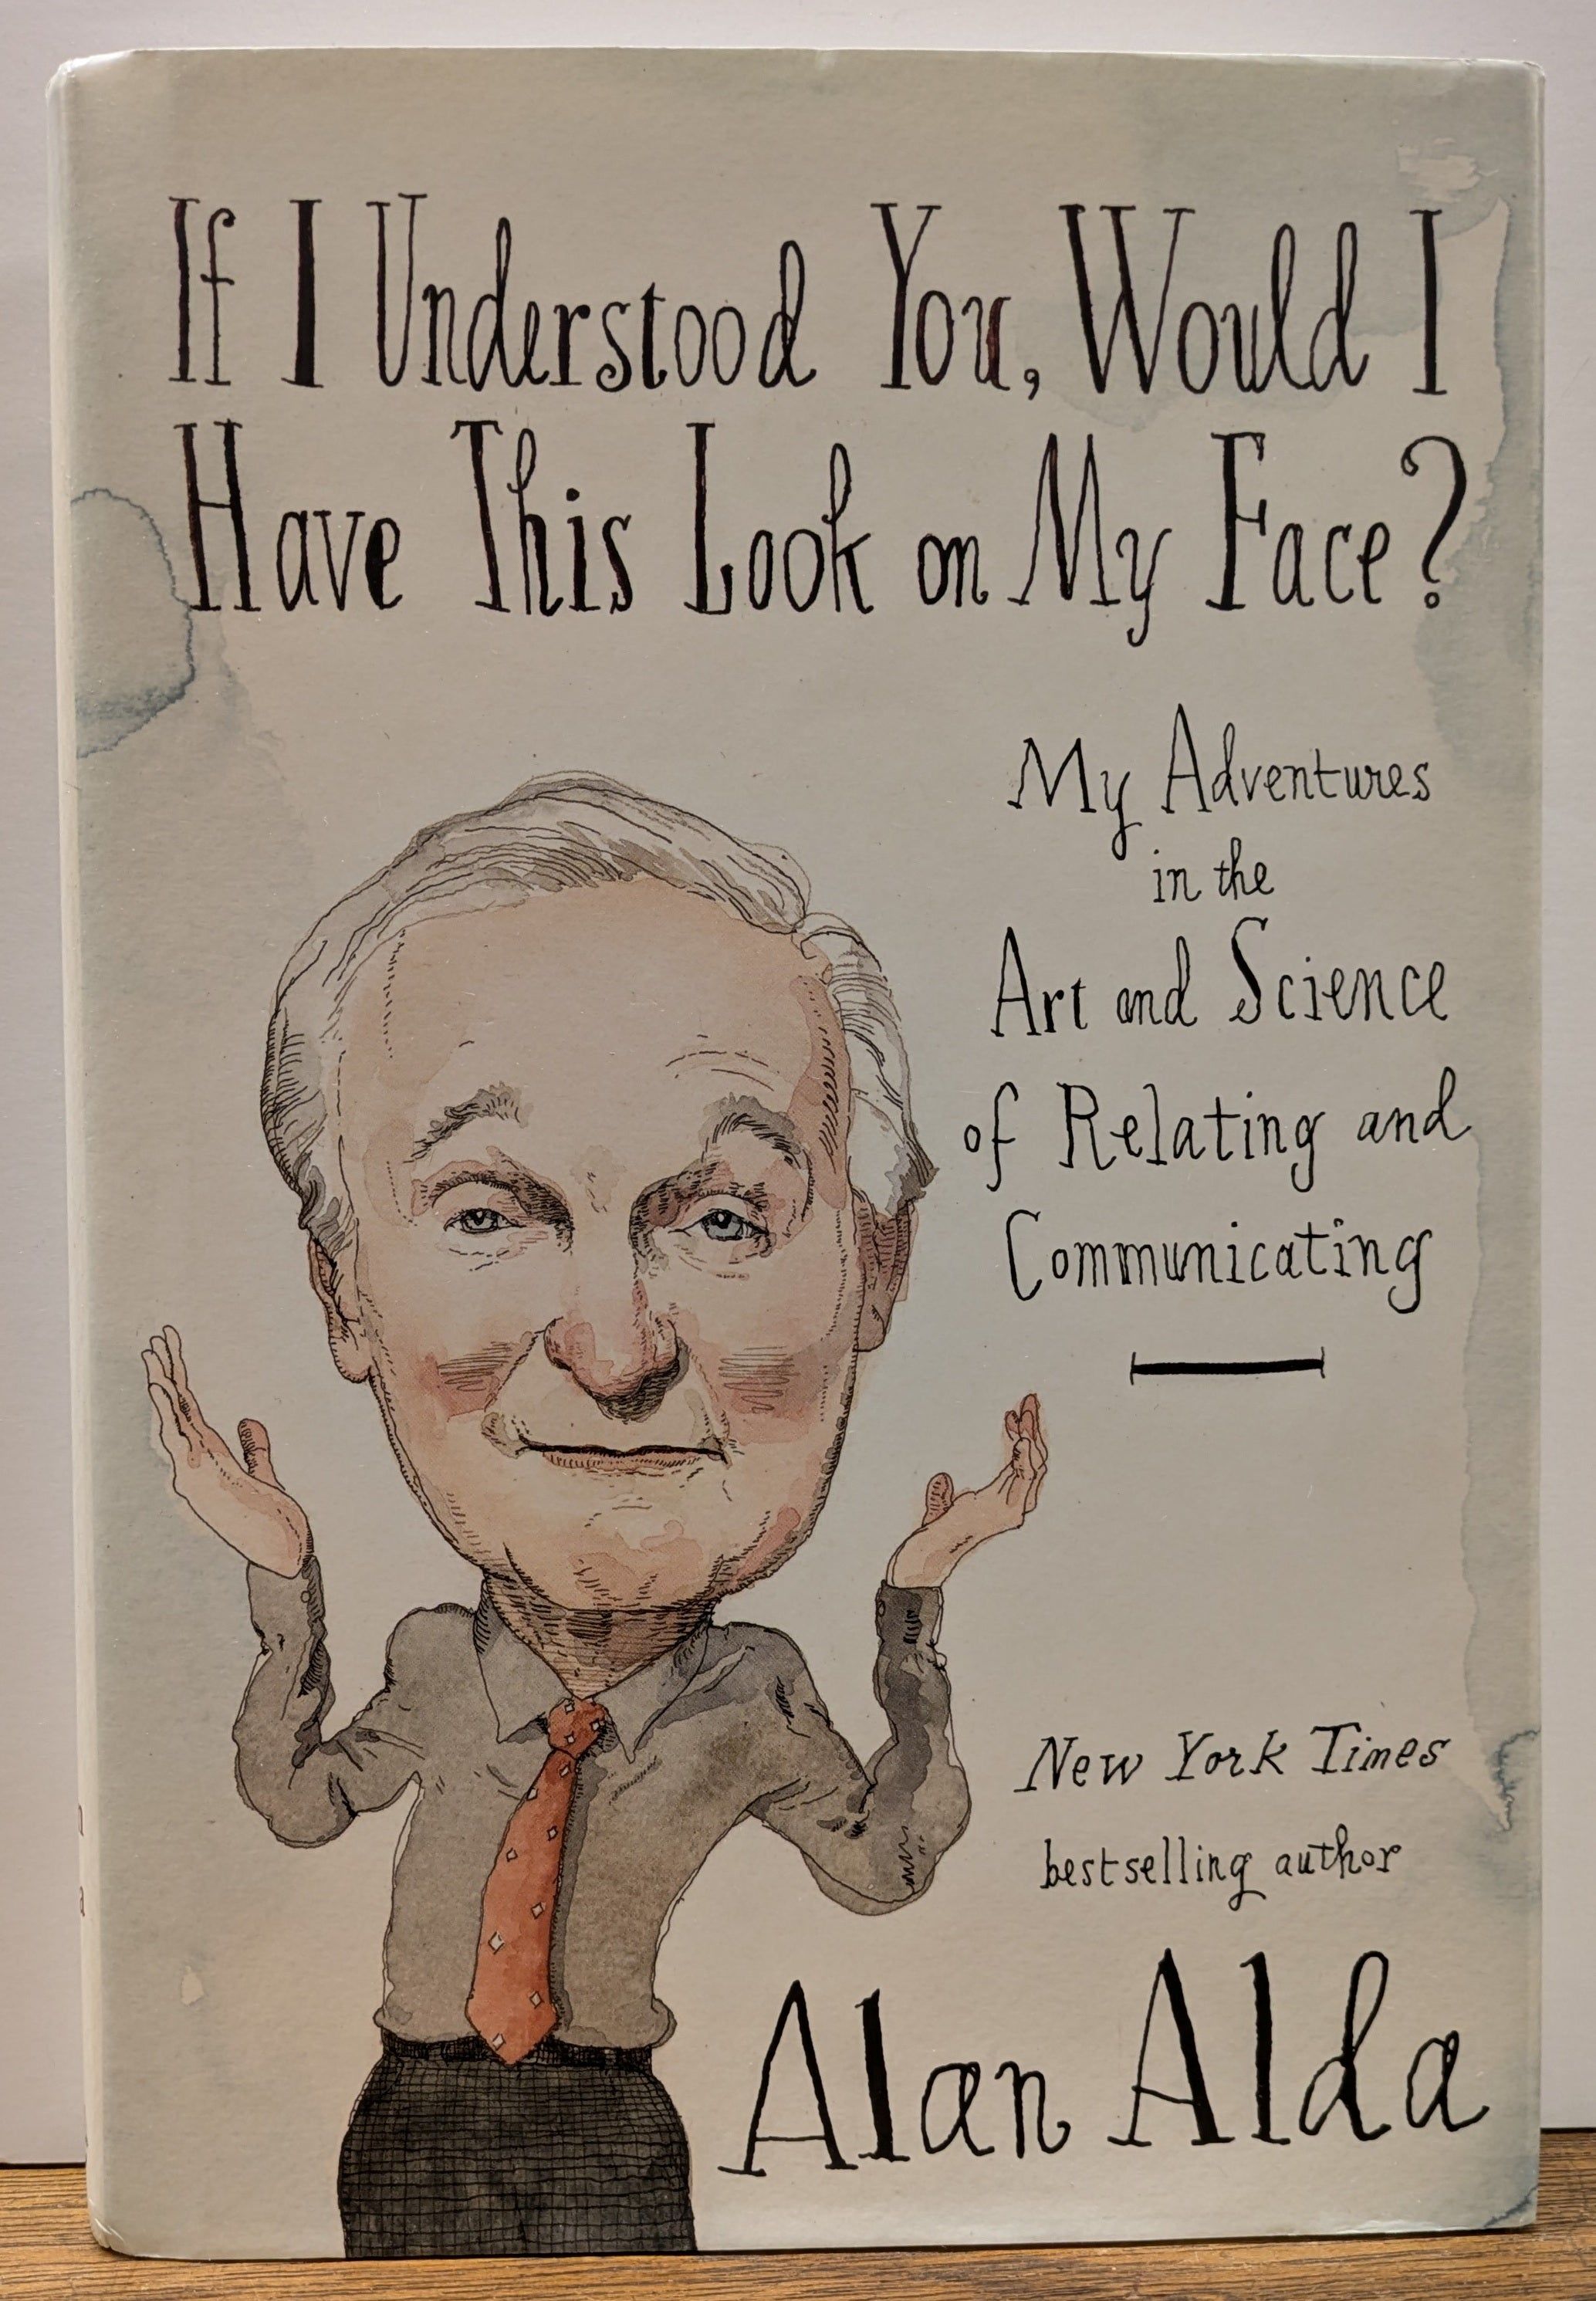 If I Understood You, Would I
Have This Look on My Face?
My Adventures
in the
Art and Science
of Relating and
Communicating
New York Times
bestselling author
Alan Alda